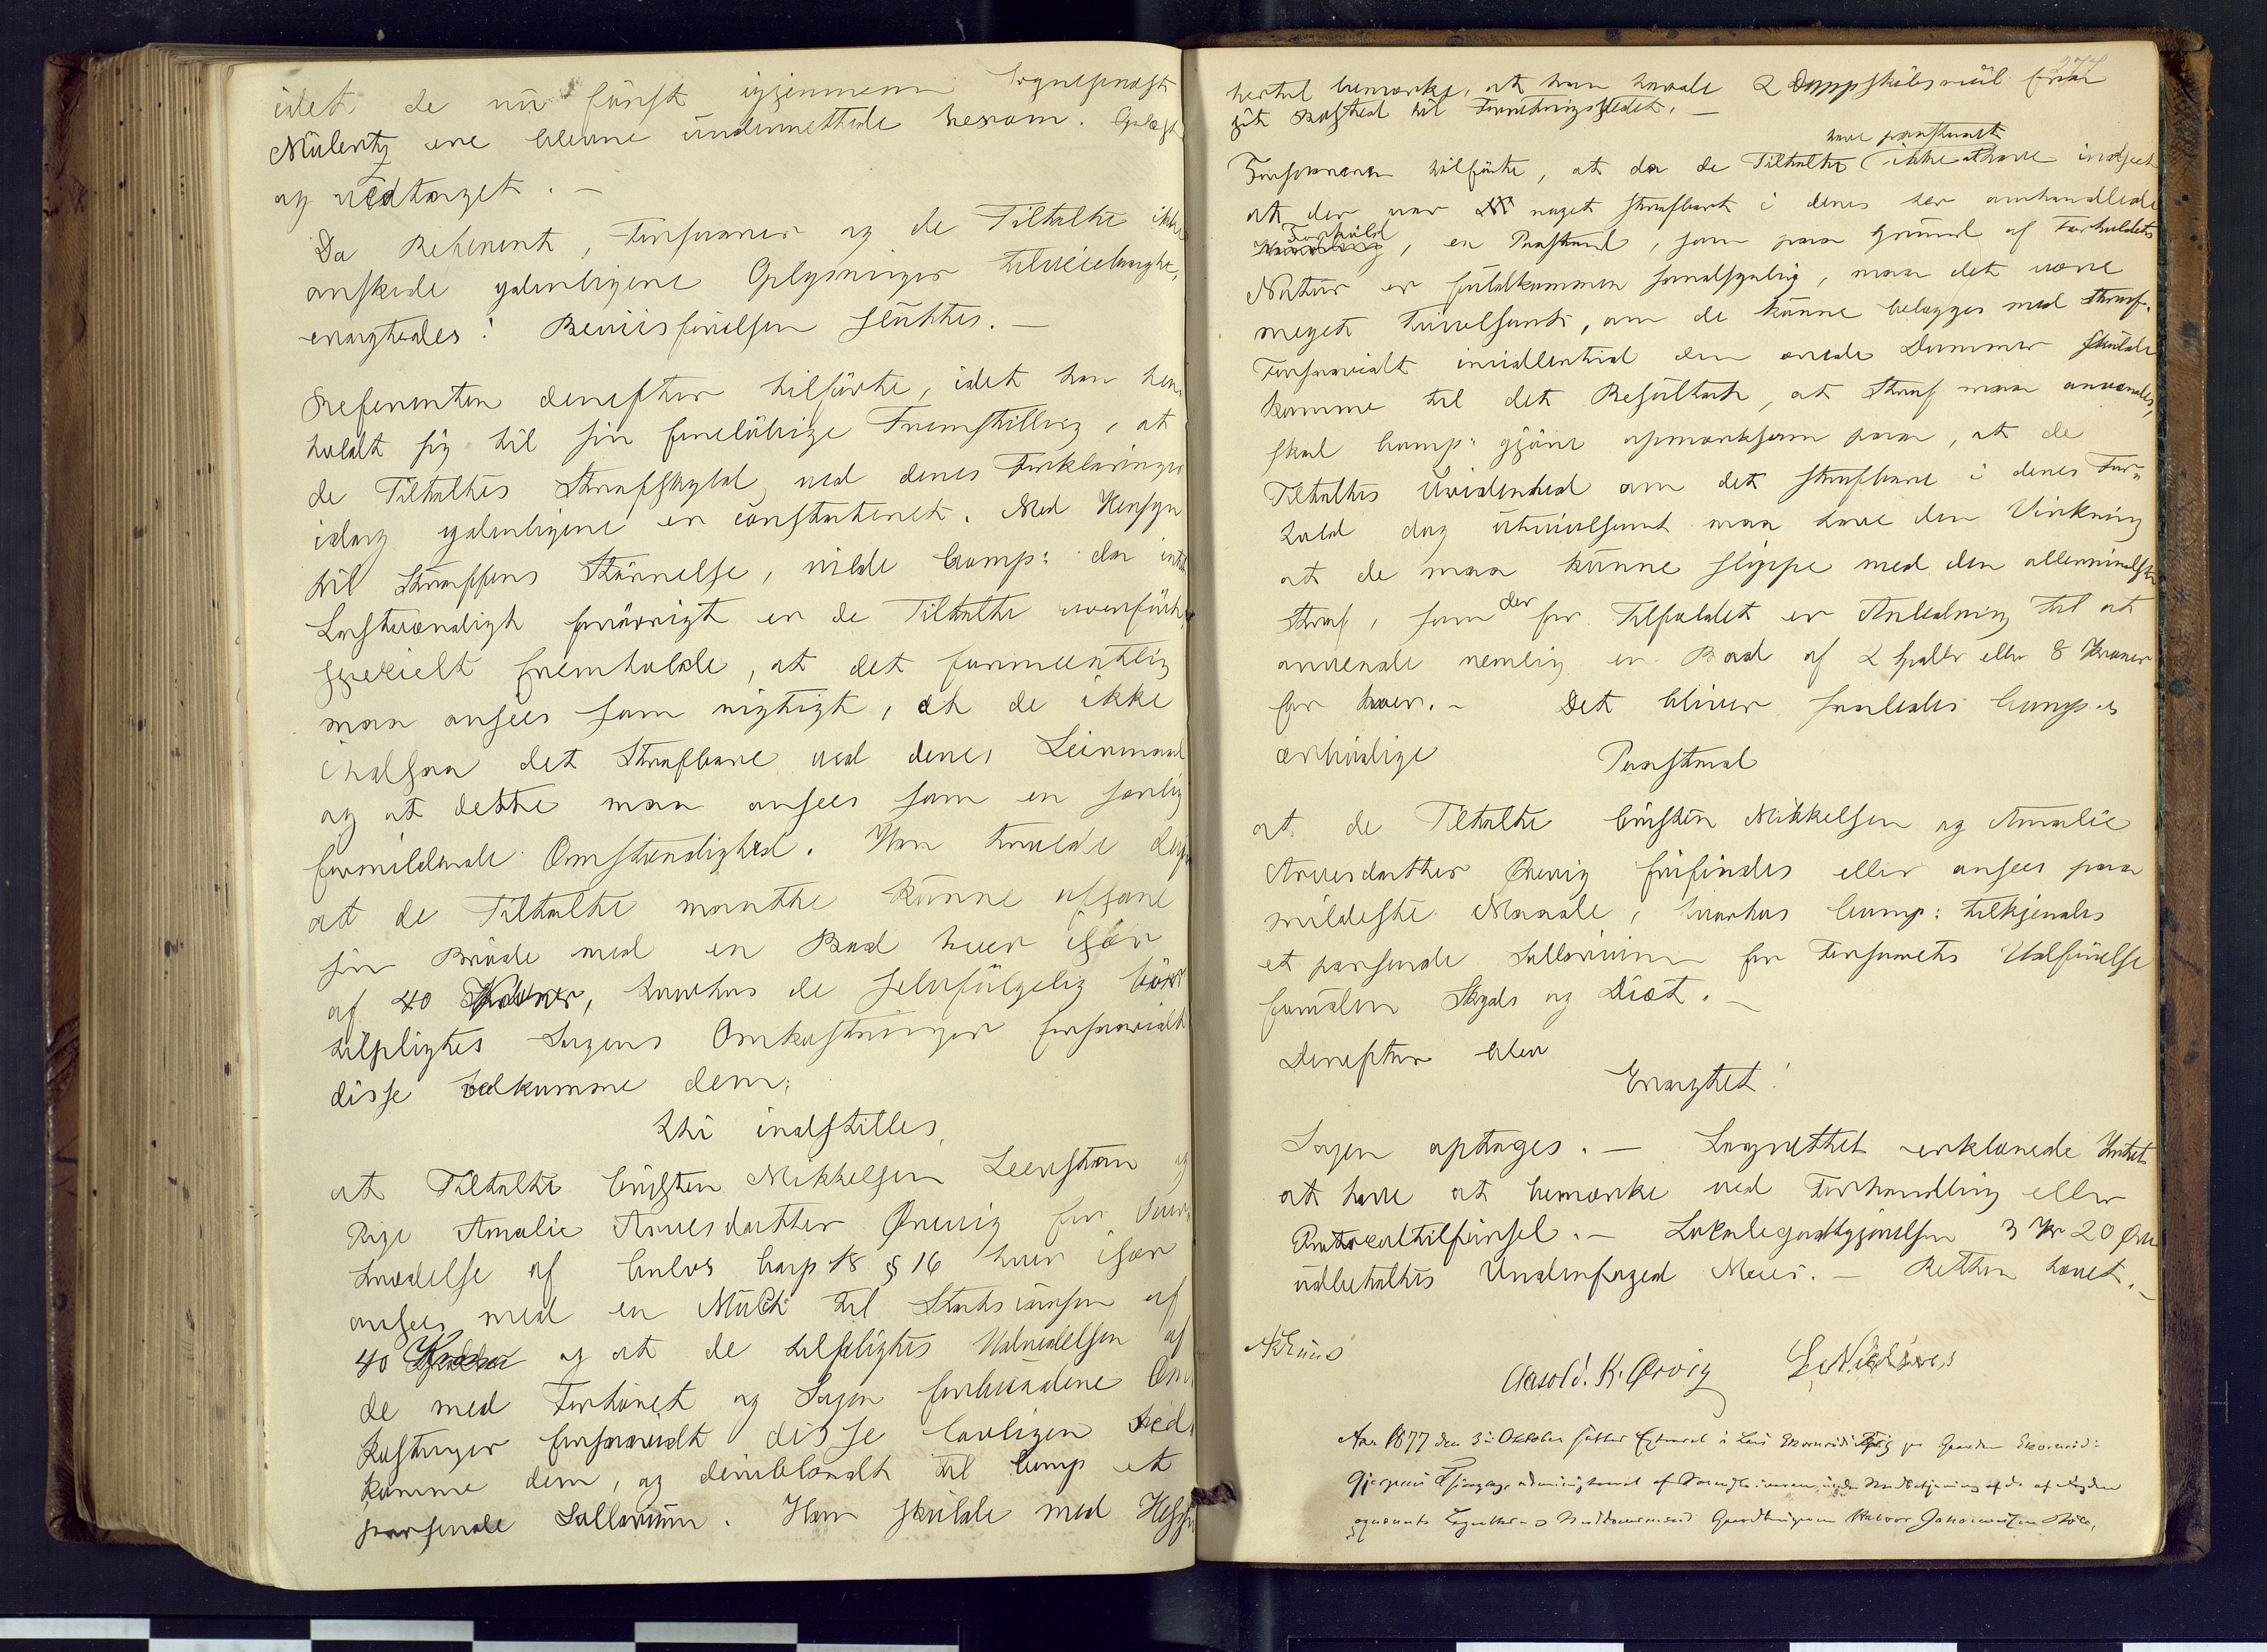 idet de nu først igjennem Sognepræst
Mülertz ere blevne underrettede herom. Oplæst
og vedtaget. —
Da Referent, Forsvarer og de Tiltalte ikke
ønskede yderligere Oplysninger tilveiebragte,
eragtedes: Beviisførelsen sluttes. —
Referenten derefter tilførte, idet han hen-
holdt sig til sin foreløbige Fremstilling, at
de Tiltaltes Strafskyld ved deres Forklaringer
idag yderligere er constateret. Med Hensyn
til Straffens Størrelse, vilde Comp: da intet
Lastværdigt forøvrigt er de Tiltalte overført
specielt fremholde, at det formeentlig
maa ansees som rigtigt, at de ikke
indsaa det Strafbare ved deres Leiermaal
og at dette maa ansees som en særlig
formildende Omstændighed. Han troede
at de Tiltalte maatte kunne afsone
sin Brøde med en Bod hver især
af 40 Kroner, hvorhos de selvfølgelig bør
tilpligtes Sagens Omkostninger forsaavidt
disse vedkomme dem;
thi indstilles,
at Tiltalte Cristen Mikkelsen Leerstøen og
Pige Amalie Arnesdatter Ørevig for Over-
trædelse af Cnlvs Cap 18 § 16 hver især
ansees med en Mulct til Statscassen af
40 Kroner og at de tilpligtes Udredelsen af
de med Forhøret og Sagen forbundne Om-
kostninger forsaavidt disse lovligen ved-
komme dem, og deriblandt til Comp et
passende Sallarium. Han skulde med Hensyn
274
hertil bemærke, at han havde 2 Dampskibsmiil fra
sit Bosted til Forretningsstedet. —
have paastaaet
Forsvareren tilførte, at da de Tiltalte ikke at have indseet
at der var noget strafbart i deres her omhandlede
Forhold
, en Paastand, som paa Grund af Forholdets
Natur er fuldkommen sandsynlig, maa det være
meget tvivlsomt, om de kunne belægges med Straf.
Forsaavidt imidlertid den ærede Dommer skulde
komme til det Resultat, at Straf maa anvendes,
skal Comp: gjøre opmærksom paa, at de
Tiltaltes Uvidenhed om det strafbare i deres For-
hold dog utvivlsomt maa have den Virkning
at de maa kunne slippe med den allermindste
Straf, som der for Tilfældet er Anledning til at
anvende nemlig en Bod af 2 Spdlr eller 8 Kroner
for hver. – Det bliver saaledes Comp.s
ærbødige Paastand
at de Tiltalte Cristen Mikkelsen og Amalie
Arnesdatter Ørevig frifindes eller ansees paa
mildeste Maade, hvorhos Comp: tilkjendes
et passende Sallarium for Forsvarets Udførelse
foruden Skyds og Diæt. —
Derefter blev
Eragtet:
Sagen optages. — Lagrettet erklærede Intet
at have at bemærke ved Forhandling eller
Protocoltilførsel. — Lokalegodtgjørelsen 3 Kr 20 Øre
udbetaltes Underfoged Moe. — Retten hævet. —
Aasold. K. Ørvig
Aar 1877 den 3die Oktober sattes Extraret i Leir paa Gaarden
administreret af Sorenskriveren under Medbetjening af de af Fogden
opnævnte Lagrettes Gaardbruger Halvor